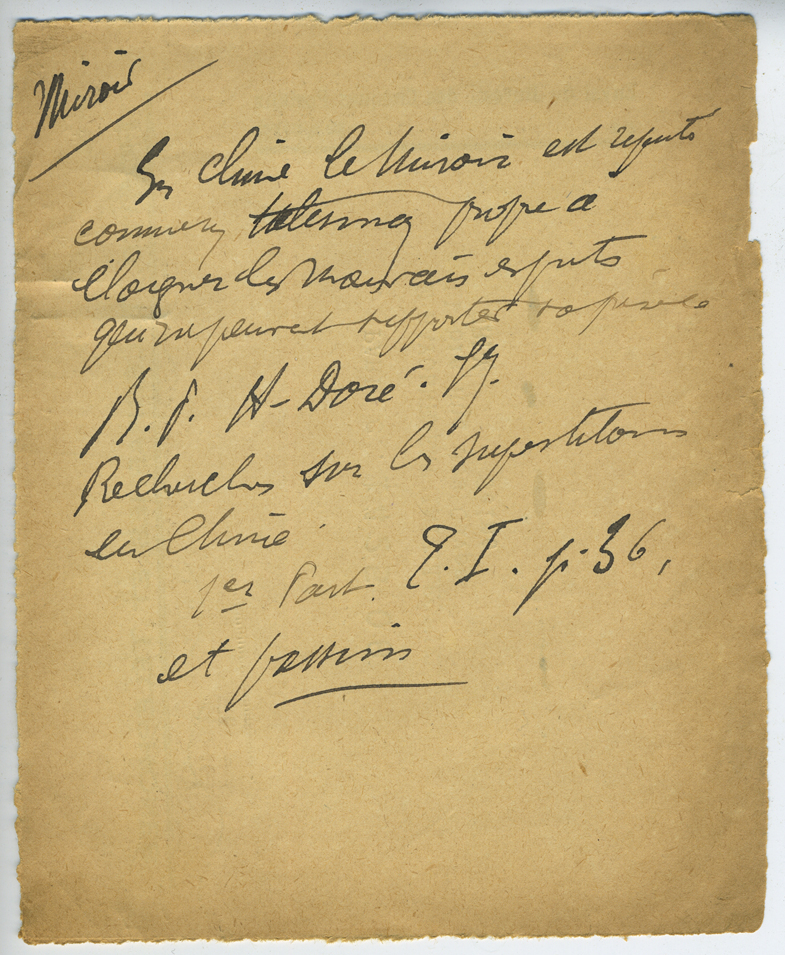 Miroir
En Chine le Miroir est réputé
comme un talisman propre à
éloigner les mauvais esprits
qui ne peuvent supporter sa
R. P. H. Doré. S.J.
Recherches sur les superstitions
en Chine
1er Part. T. I. p. 36,
et passim